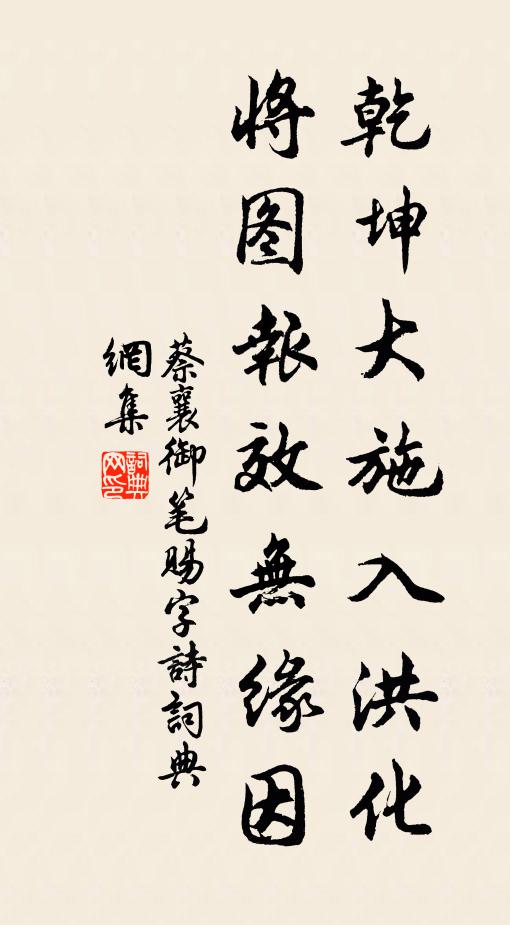 乾坤大施入洪化
将图報效無緣因
蔡襄御笔賜字詩詞典
網集
詞典
网印